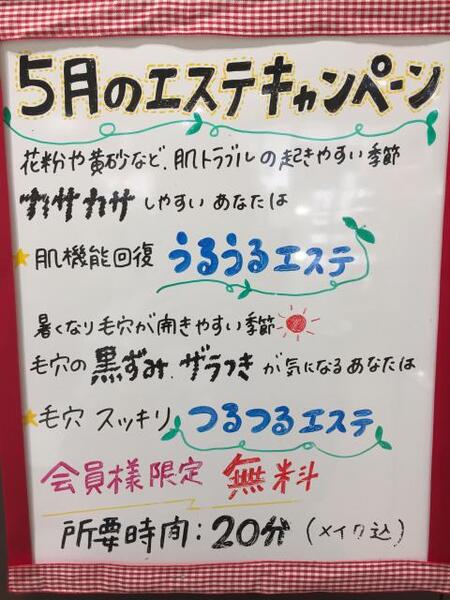 5月のエステキャンペーン
花粉や黄砂など、肌トラブルの起きやすい季節
カサカサしやすいあなたは
肌機能回復 うるうるエステ
暑くなり毛穴が開きやすい季節
毛穴の黒ずみ、ザラつきが気になるあなたは
毛穴スッキリ つるつるエステ
会員様限定 無料
所要時間:20分(メイク込)